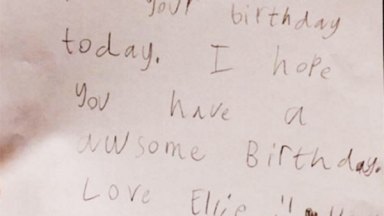 your birthday
today. I hope
you have a
awsome Birthday.
Love Ellie